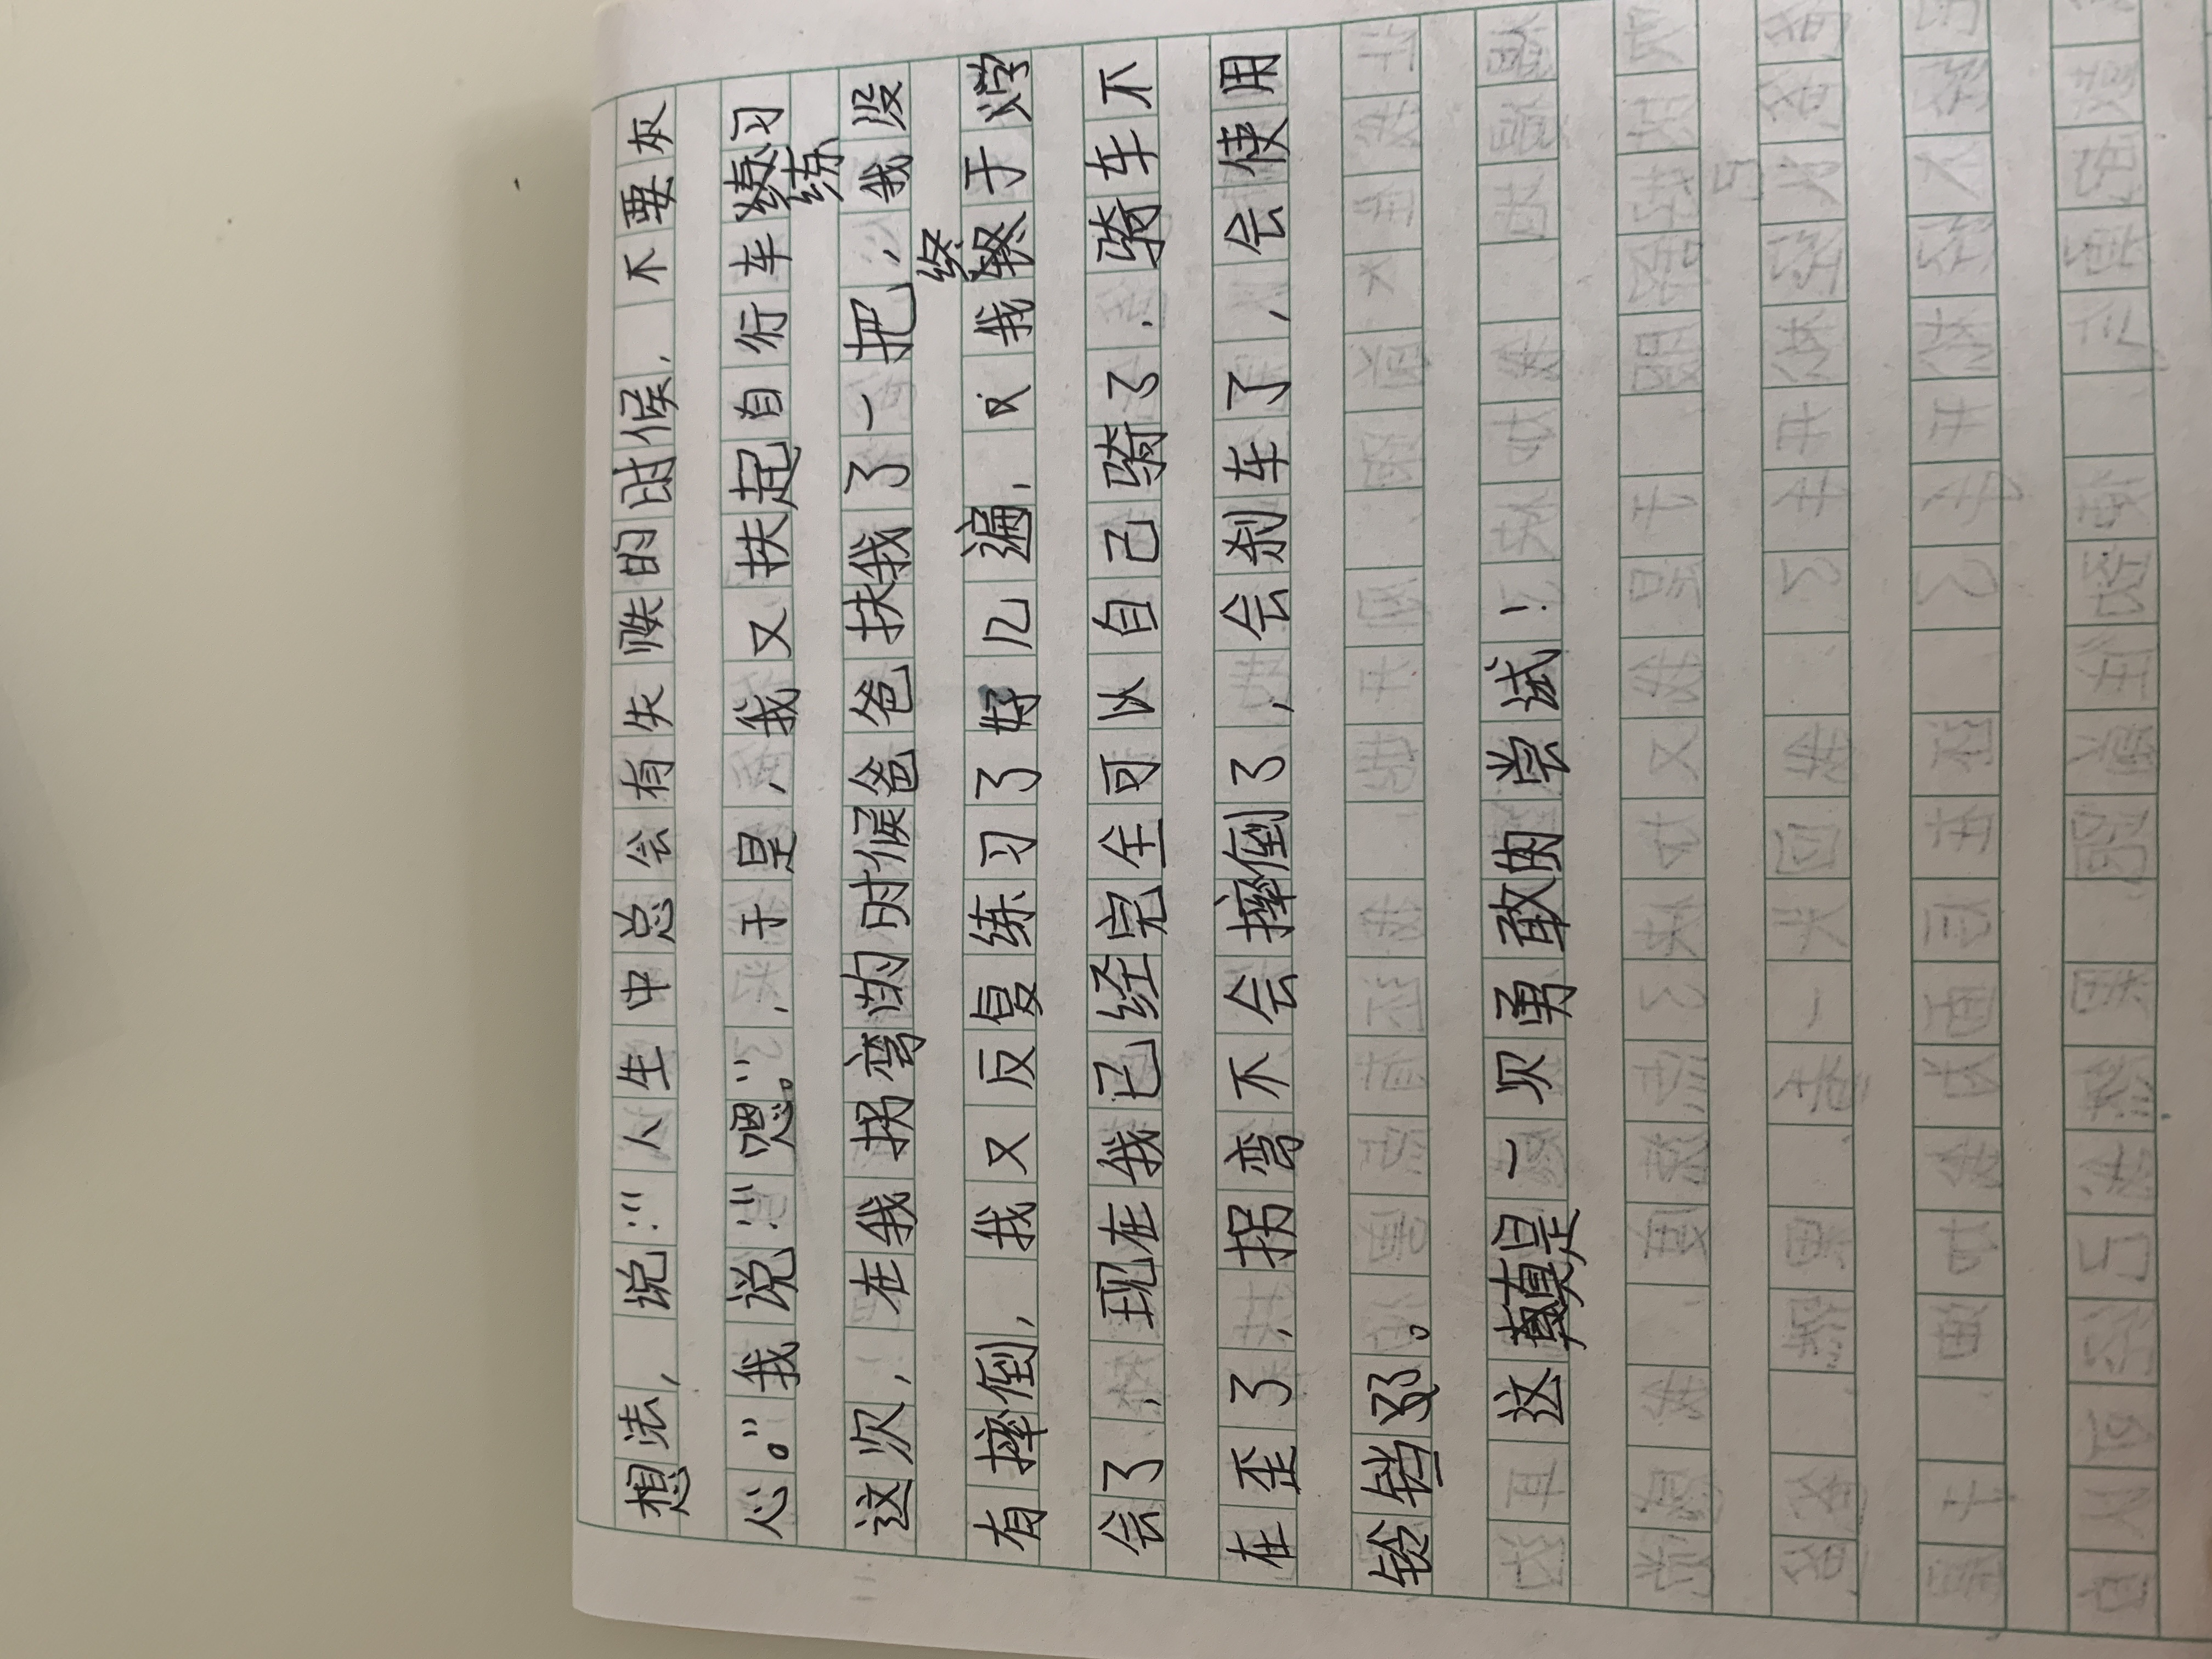 想法，说："人生中总会有失败的时候，不要灰
心。"我说："嗯。"，于是，我又扶起自行车练习
练
这次，在我拐弯的时候爸爸扶我了一把，我没
终
有摔倒，我又反复练习了好几遍，我终于学
会了，现在我已经完全可以自己骑了，骑车不
在歪了，拐弯不会摔倒了，会刹车了，会使用
铃铛了。
这真是一次勇敢的尝试！